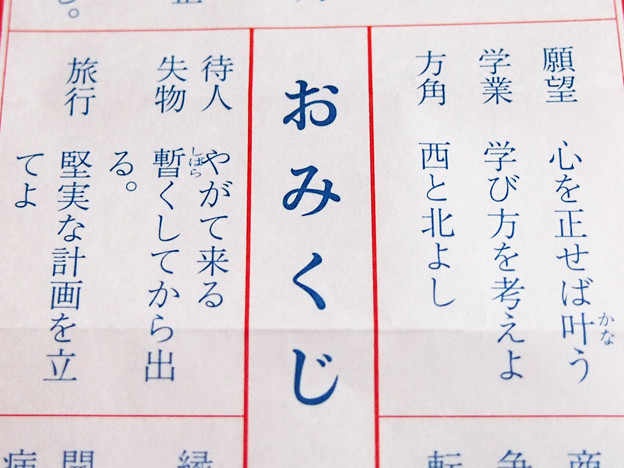 願望 心を正せば叶う
かな
学業 学び方を考えよ
方角 西と北よし
おみくじ
待人 やがて来る
失物 暫くしてから出
しばら
る。
旅行 堅実な計画を立
てよ